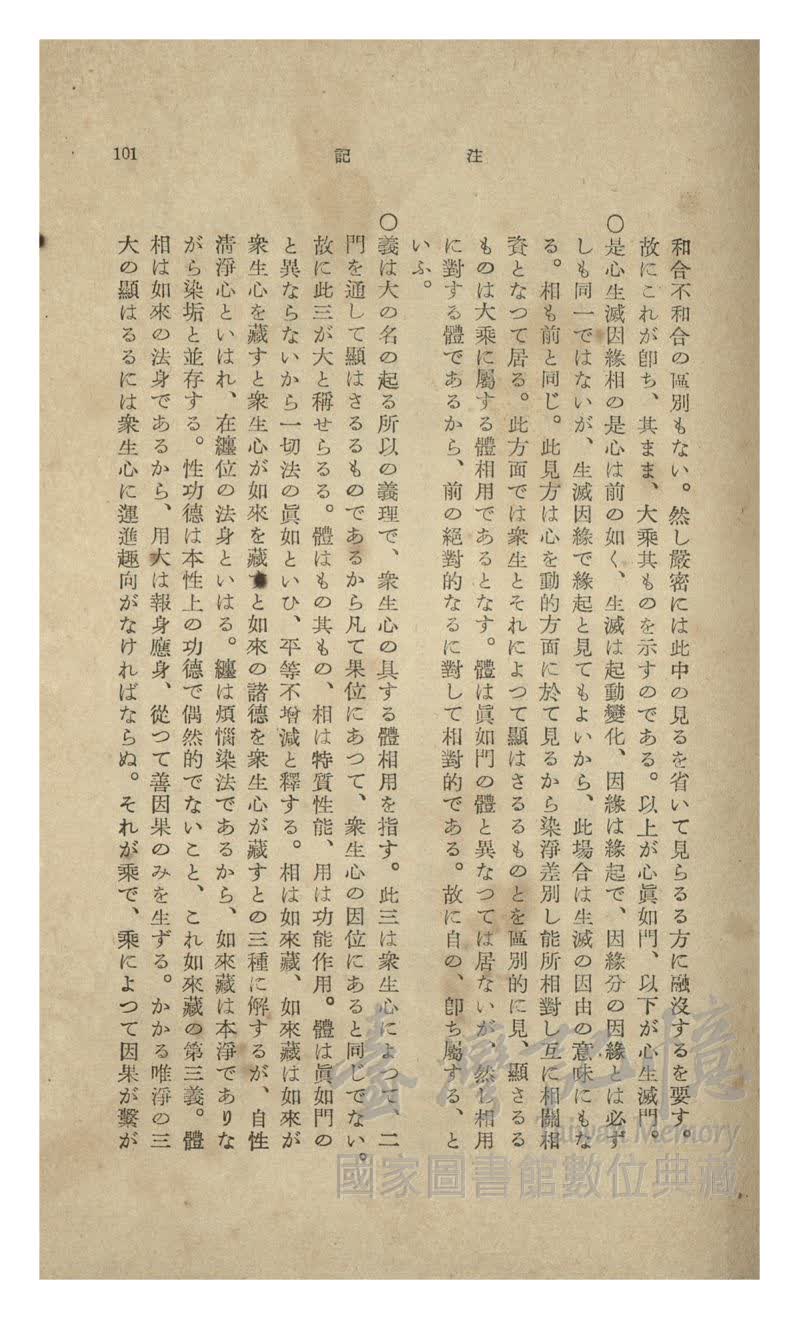 注記
101
和合不和合の區別もない。然し嚴密には此中の見るを省いて見らるる方に融沒するを要す。
故にこれが卽ち、其まま、大乘其ものを示すのである。以上が心眞如門、以下が心生滅門。
〇是心生滅因緣相の是心は前の如く、生滅は起動變化、因緣は緣起で、因緣分の因緣とは必ず
しも同一ではないが、生滅因緣で緣起と見てもよいから、此場合は生滅の因由の意味にもな
る。相も前と同じ。此見方は心を動的方面に於て見るから染淨差別し能所相對し互に相關相
資となつて居る。此方面では衆生とそれによつて顯はさるるものとを區別的に見、顯さるる
ものは大乘に屬する體相用であるとなす。體は眞如門の體と異なつては居ないが、然し相用
に對する體であるから、前の絕對的なるに對して相對的である。故に自の、卽ち屬する、と
いふ。
〇義は大の名の起る所以の義理で、衆生心の具する體相用を指す。此三は衆生心によつて、二
門を通して顯はさるるものであるから凡て果位にあつて、衆生心の因位にあると同じでない。
故に此三が大と稱せらるる。體はもの其もの、相は特質性能、用は功能作用。體は眞如門の
と異ならないから一切法の眞如といひ、平等不增減と釋する。相は如來藏、如來藏は如來が
衆生心を藏すと衆生心が如來を藏すと如來の諸德を衆生心が藏すとの三種に解するが、自性
淸淨心といはれ、在纏位の法身といはる。纏は煩惱染法であるから、如來藏は本淨でありな
がら染垢と並存する。性功德は本性上の功德で偶然的でないこと、これ如來藏の第三義。體
相は如來の法身であるから、用大は報身應身、從つて善因果のみを生ずる。かかる唯淨の三
大の顯はるるには衆生心に運進趣向がなければならぬ。それが乘で、乘によつて因果が繫が
臺灣記憶
Taiwan Memory
國家圖書館數位典藏